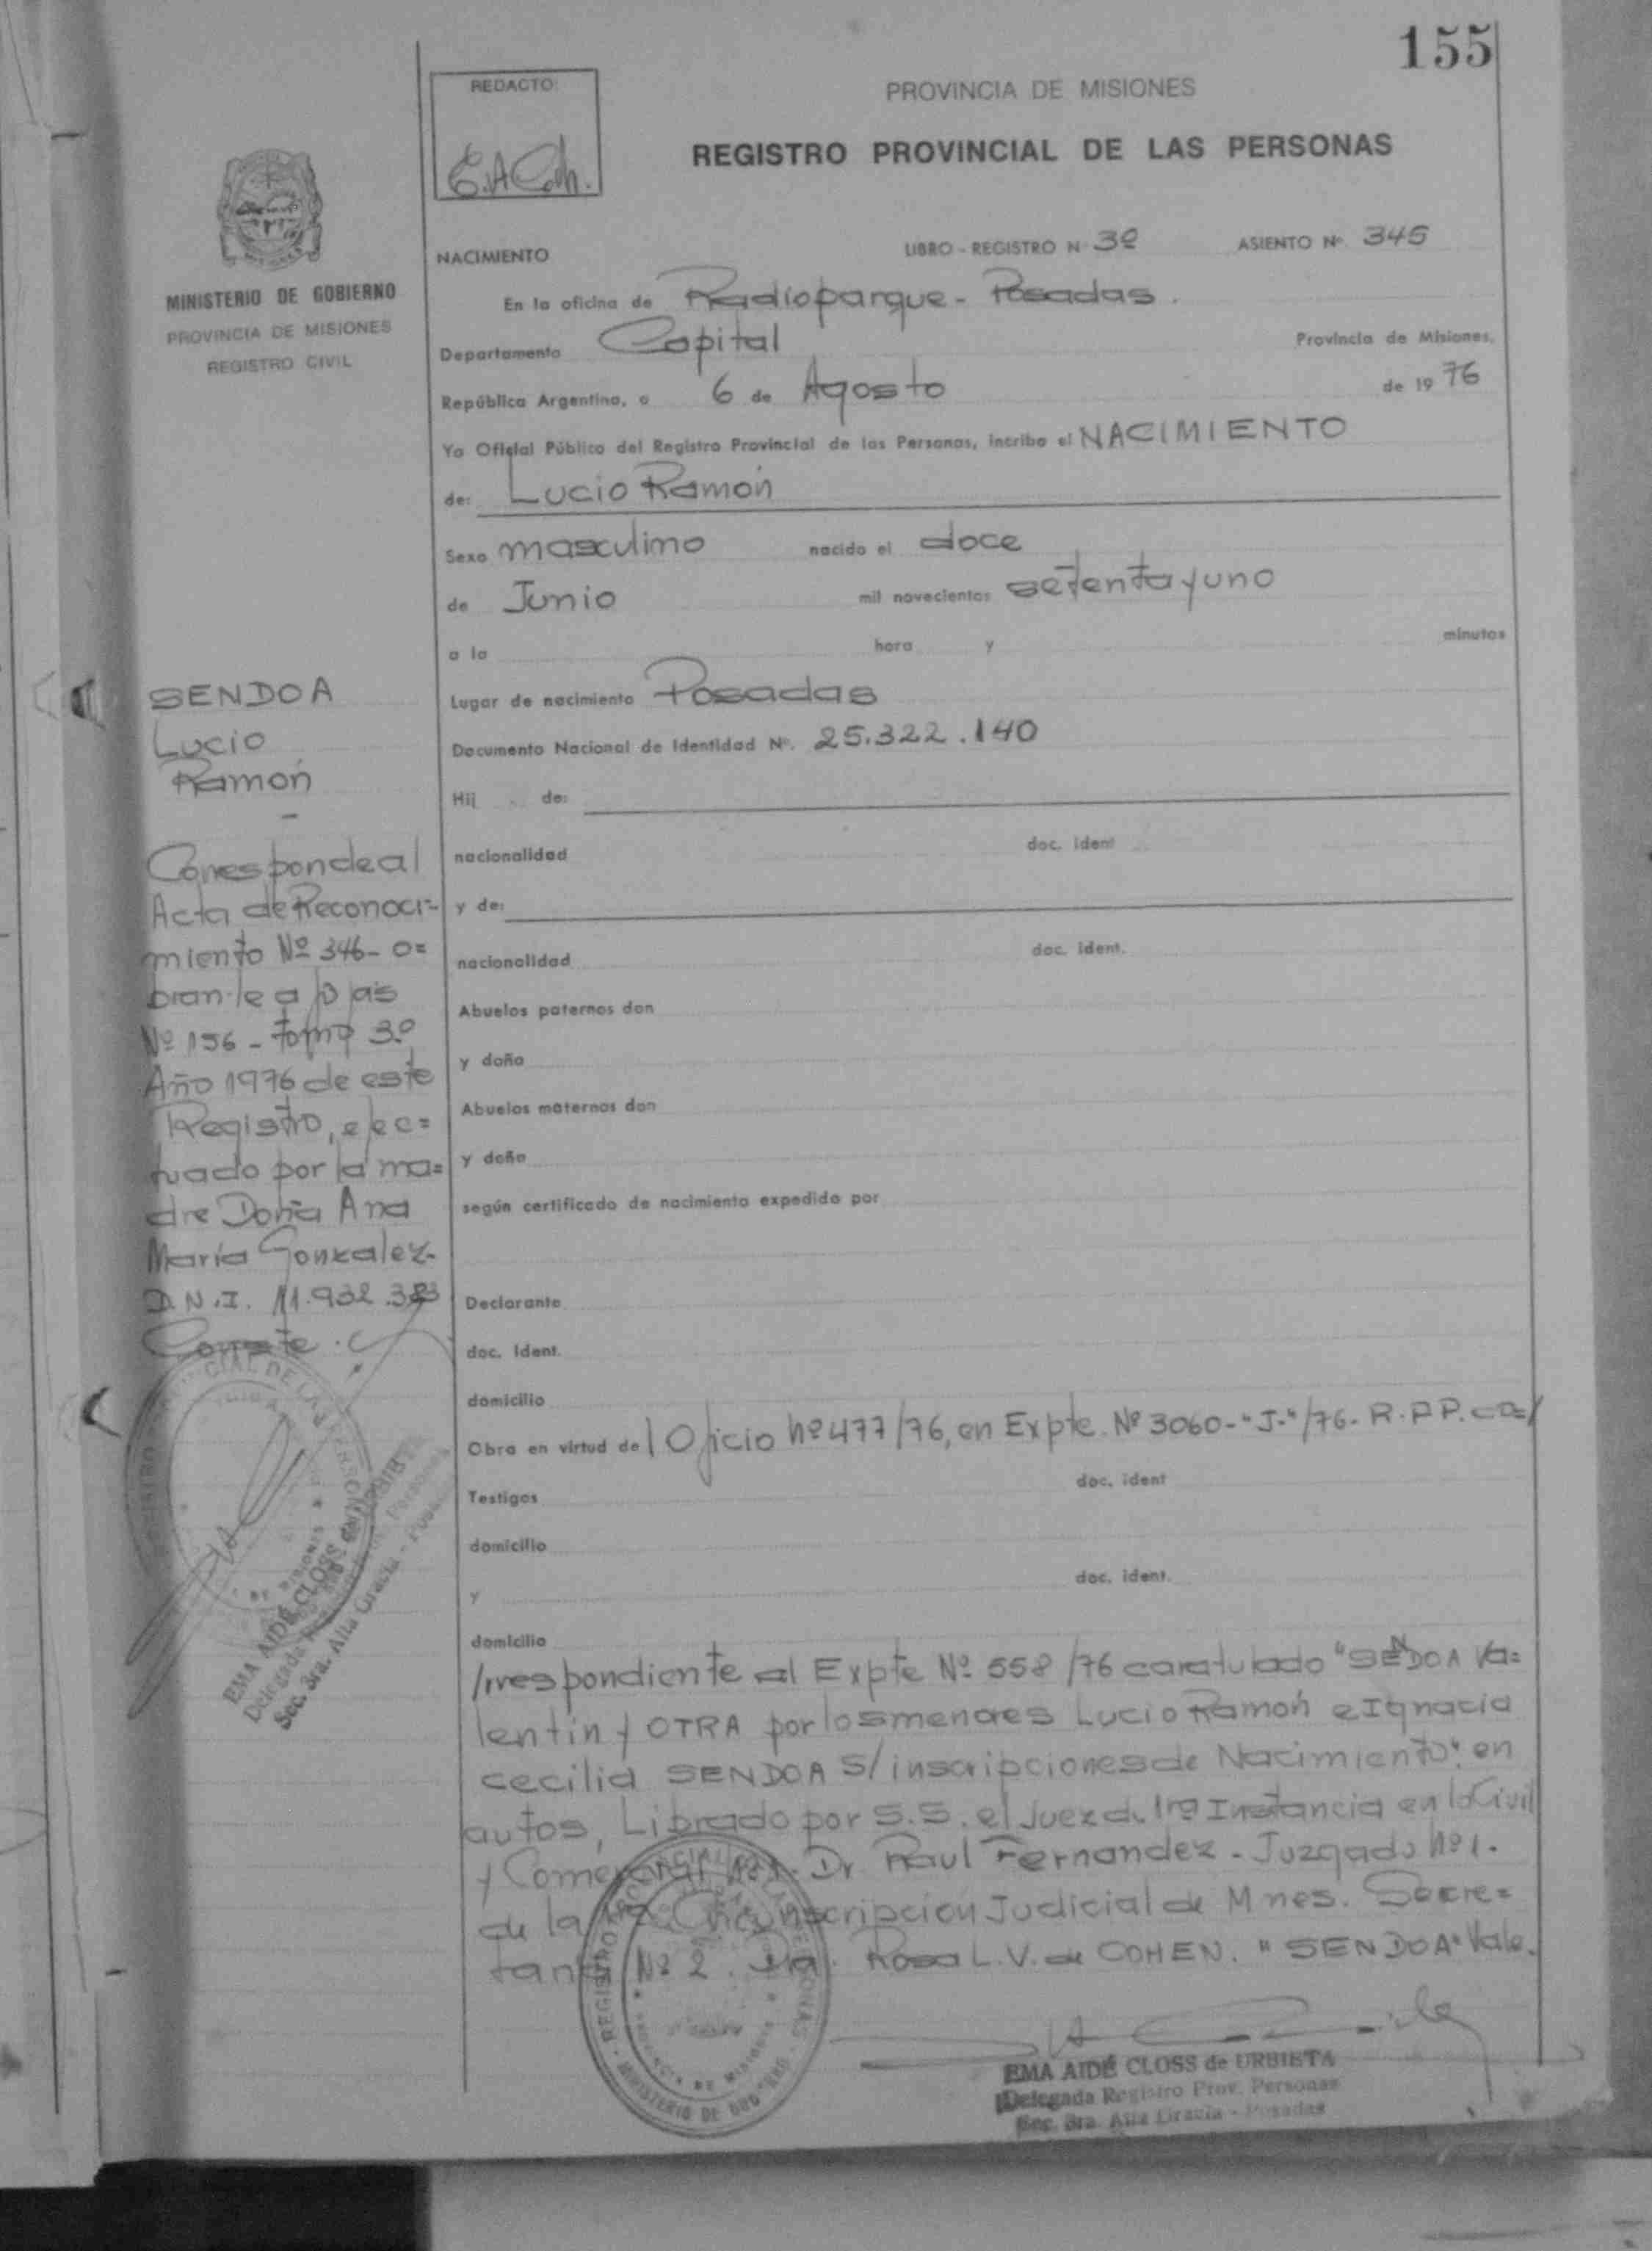 155
REDACTO:
PROVINCIA DE MISIONES
REGISTRO PROVINCIAL DE LAS PERSONAS
MINISTERIO DE GOBIERNO
PROVINCIA DE MISIONES
REGISTRO CIVIL
NACIMIENTO LIBRO - REGISTRO N 3º ASIENTO Nº 345
En la oficina de Radioparque - Posadas.
Departamento Capital Provincia de Misiones,
República Argentina, a 6 de Agosto de 19 76
Yo Oficial Público del Registro Provincial de las Personas, incribo el NACIMIENTO
de: Lucio Ramón
Sexo masculino nacido el doce
de Junio mil novecientos setenta y uno
a la hora y minutos
Lugar de nacimiento Posadas
Documento Nacional de Identidad Nº. 25.322.140
Hij de:
nacionalidad doc. ident
y de:
nacionalidad doc. ident.
Abuelos paternos don
y doña
Abuelos maternos don
y doña
según certificado de nacimiento expedido por
Declarante
doc. ident.
domicilio
Obra en virtud de l Oficio Nº 477/76, en Expte. Nº 3060-"J-"/76- R.P.P. co=/
Testigos doc. ident
domicilio
y doc. ident.
domicilio
/rrespondiente al Expte Nº 558/76 caratulado "SENDOA Va=
lentín y OTRA por los menores Lucio Ramón e Ignacia
Cecilia SENDOA S/inscripciones de Nacimiento". en
autos, Librado por S.S. el Juez de 1ra Instancia en lo Civil
y Comercial Nº 1. Dr Raul Fernandez - Juzgado Nº 1.
de la Circunscripción Judicial de Mnes. Secre=
taria Nº 2. Dra. Rosa L.V. de COHEN. "SENDOA" Vale.
EMA AIDÉ CLOSS de URBIETA
Delegada Registro Prov. Personas
Sec. 3ra. Alta Gracia - Posadas
SENDOA
Lucio
Ramón
-
Corresponde al
Acta de Reconoci-
miento Nº 346- o=
brante a fojas
Nº 156 - Tomo 3º
Año 1976 de este
Registro, efec=
tuado por la ma=
dre Doña Ana
María Gonzalez-
D.N.I. 11.932.383
Conste.
EMA AIDÉ CLOSS de URBIETA
Delegada Personas
Sec. 3ra. Alta Gracia - Posadas
REGISTRO PROVINCIAL DE LAS PERSONAS
PROVINCIA DE MISIONES
MINISTERIO DE GOB